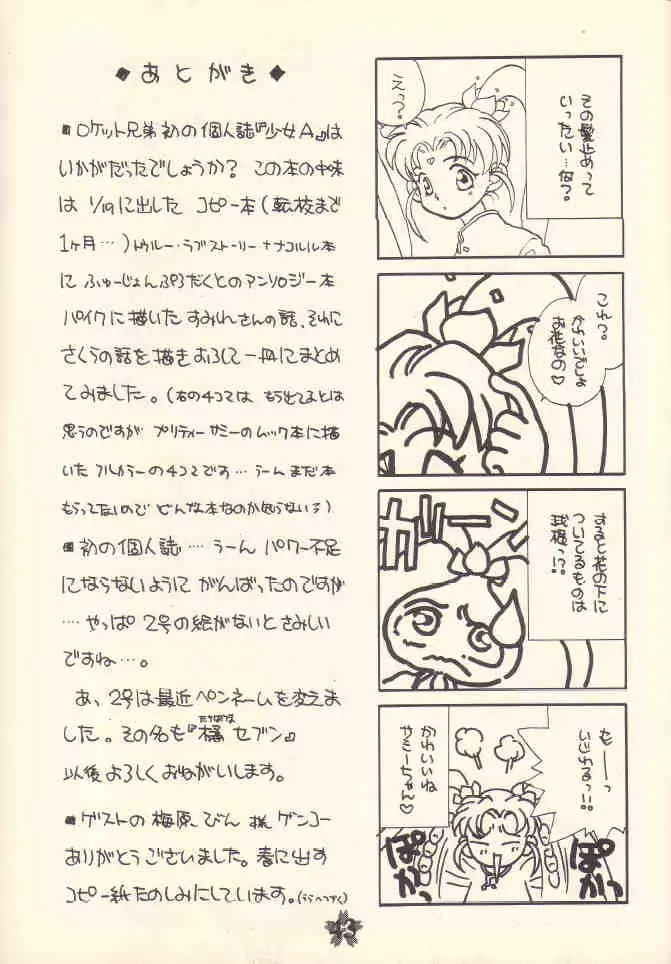 ◆あとがき◆
■ロケット兄弟初の個人誌『少女A』は
いかがだったでしょうか? この本の中味
は 1/19に出した コピー本(転校まで
1ヶ月…)トゥルー・ラブストーリー+ナコルル本
に ふゅーじょんぷろだくとのアンソロジー本
パイクに描いた すみれさんの話、それに
さくらの話を描きおろして一冊にまとめ
てみました。(右の4コマは もう出てるとは
思うのですが プリティーサミーのムック本に描
いた フルカラーの4コマです…うーん まだ本
もらってないので どんな本なのか知らない3)
■初の個人誌…. うーん パワー不足
にならないように がんばったのですが
….やっぱ 2号の絵がないとさみしい
ですね…。
あ、2号は最近ペンネームを変えま
した。その名も『橘 セブン』
たちばな
以後よろしくおねがいします。
■ゲストの 梅原、びん 様 ゲンコー
ありがとうございました。春に出す
コピー紙たのしみにしています。(うらへつづく)
その髪止めって
いったい…何?。
えっ?。
これ?。
かわいいでしょ
お花なの♡
すると花の下に
ついてるものは
球根っ!?
ガーン
もーーっ
いじわるっ!!
かわいいね
サミーちゃん♡
ぽかっ
ぽかっ
43